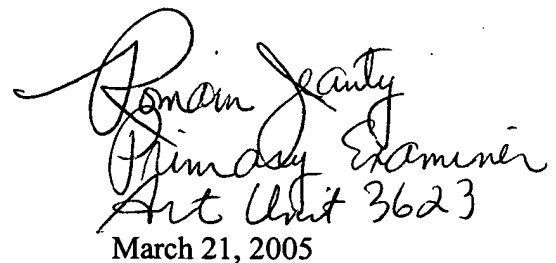 Romain Jeanty
Primary Examiner
Art Unit 3623
March 21, 2005